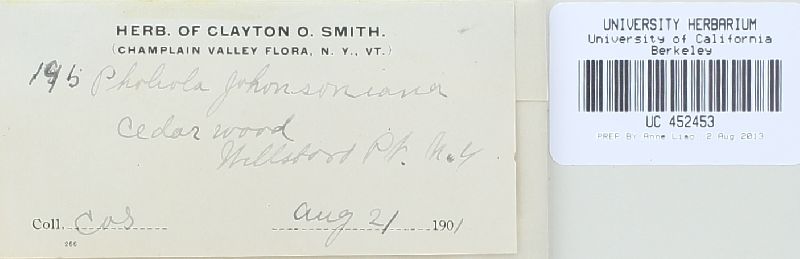 HERB. OF CLAYTON O. SMITH.
(CHAMPLAIN VALLEY FLORA, N. Y., VT.)
195 Pholiota Johonsoniana
Cedar wood
Willsboro Pt. N.Y.
Coll. COS Aug 21 1901
266
UNIVERSITY HERBARIUM
University of California
Berkeley
UC 452453
PREP BY Anne Liao 2 Aug 2013